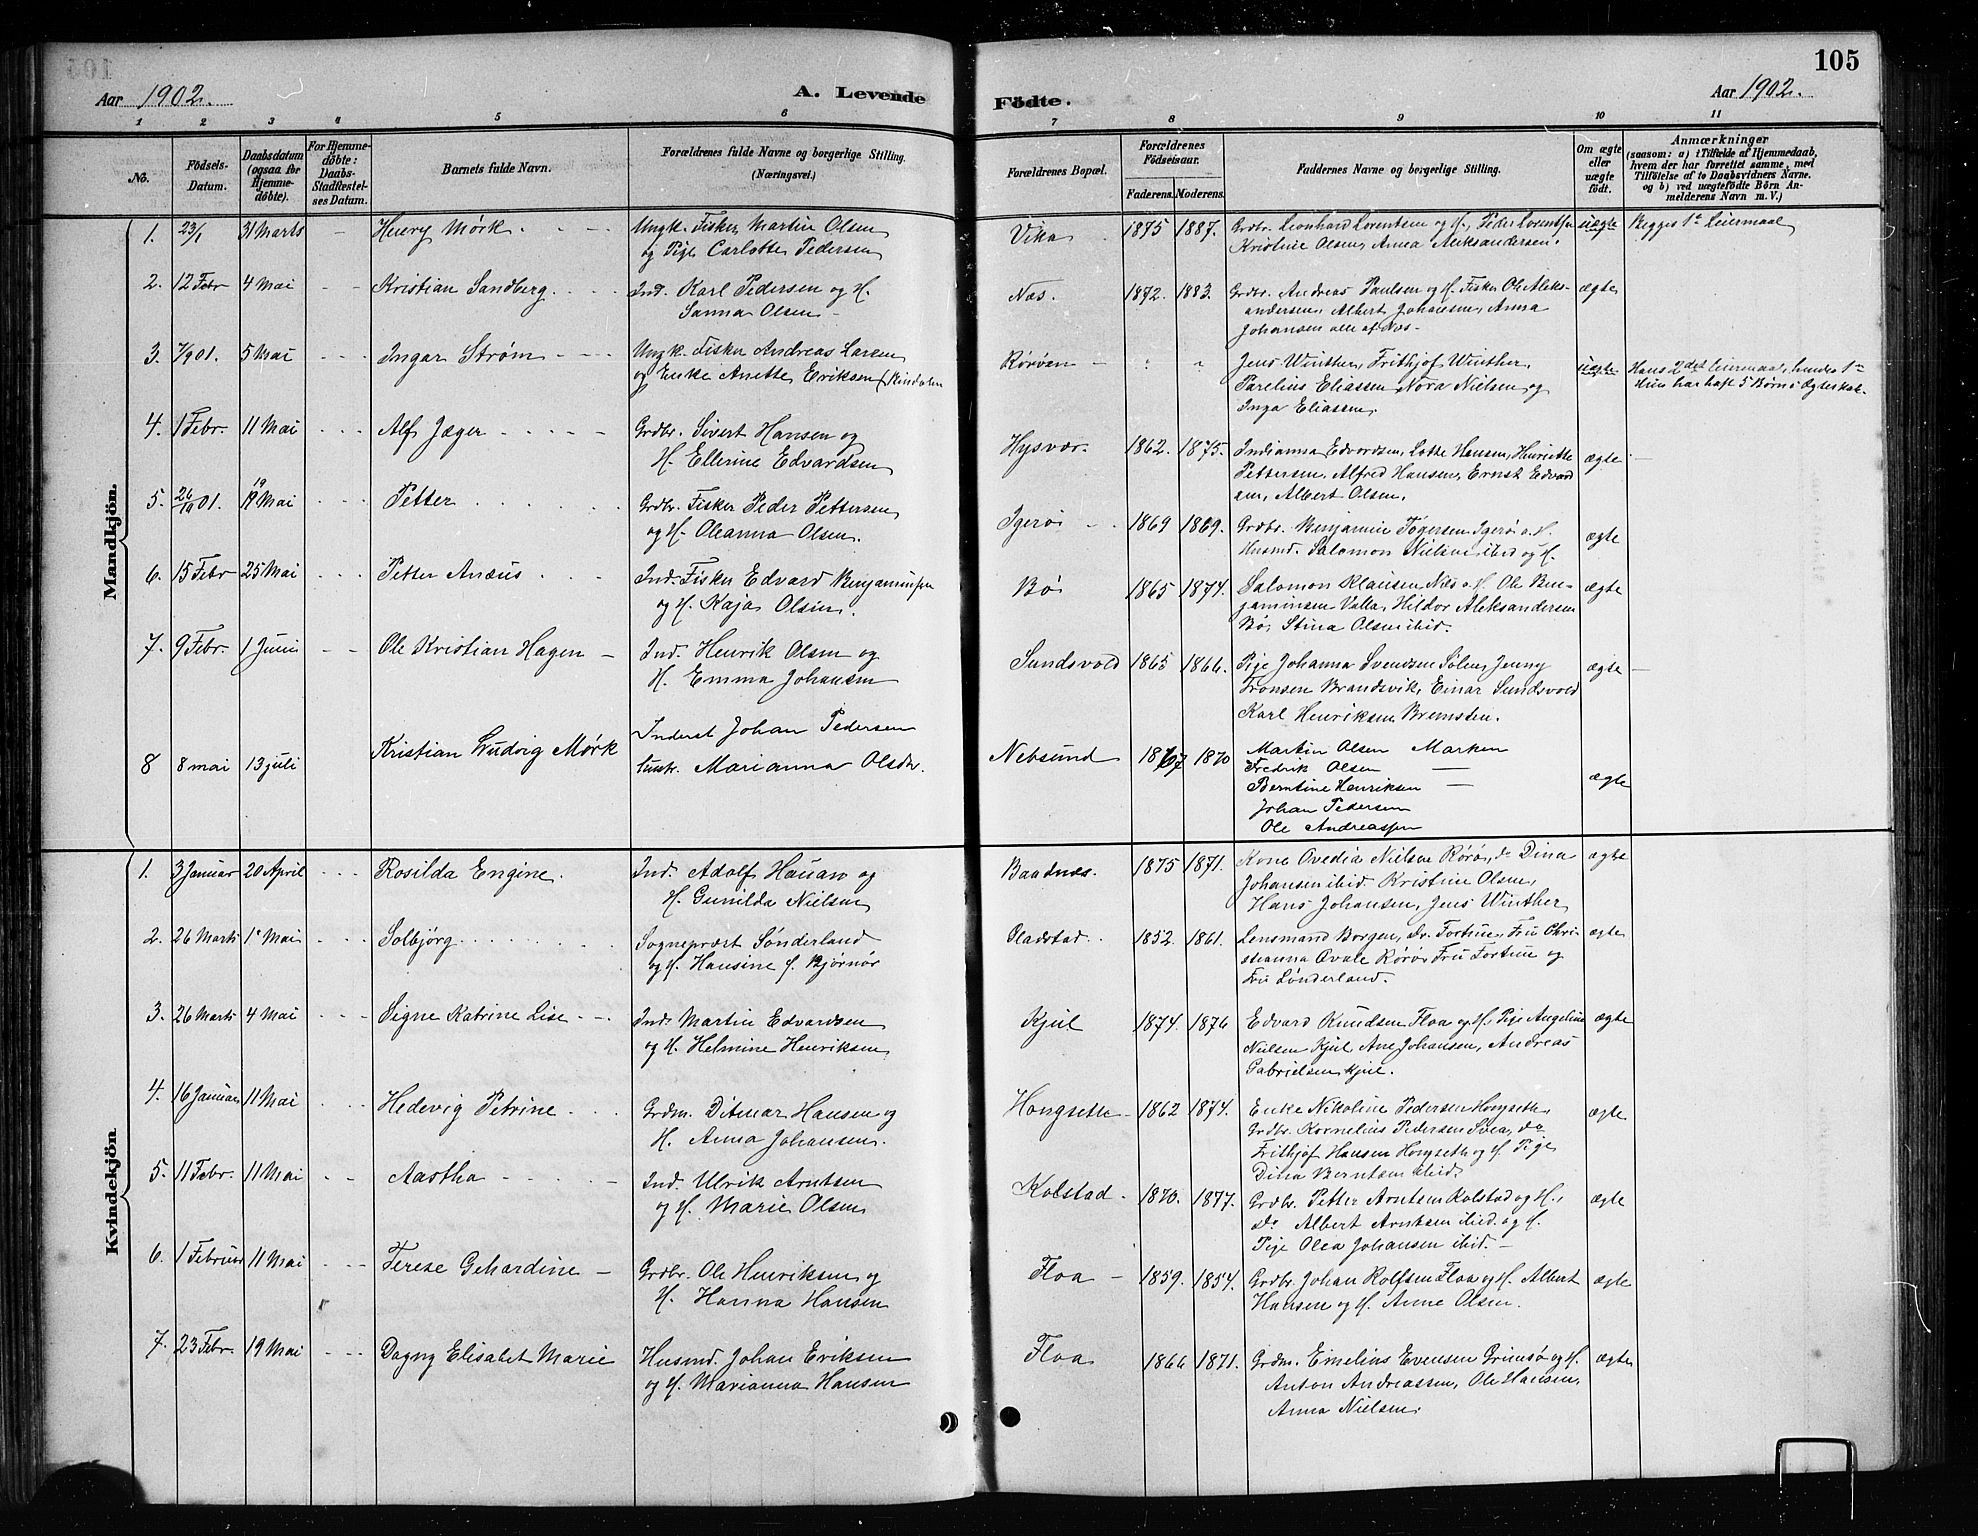 105
Aar 1902.
A. Levende Födte.
Aar 1902.
1 2 3 4 5 6 7 8 9 10 11
No.
Födsels-Datum.
Daabsdatum (ogsaa for Hjemmedöbte).
For Hjemmedöbte: Daabs-Stadfæstelses Datum.
Barnets fulde Navn.
Forældrenes fulde Navne og borgerlige Stilling. (Næringsvei.)
Forældrenes Bopæl.
Forældrenes Födselsaar.
Faderens. Moderens.
Faddernes Navne og borgerlige Stilling.
Om ægte eller uægte födt.
Anmærkninger
(saasom: a) i Tilfælde af Hjemmedaab,
hvem der har forrettet samme, med
Tilföielse af to Daabsvidners Navne.
og b) ved uægtefödte Börn An-
melderens Navn m. V.)
Mandkjön.
1. 23/1 31 Marts - Henry Mørk. Ungk. Fisker Martin Olsen Vika 1875 1887. Grdbr. Leonhard Lorentsen og H., Peder Lorentsen uægte Begges 1ste Leiermaal
og Pige Carlotte Pedersen Kristine Olsen, Anna Aleksandersen.
2. 12 Febr 4 Mai - - Kristian Sandberg. Ind. Karl Pedersen og H. Næs. 1872. 1883. Grdbr. Andreas Paulsen og H. Fisker Ole Aleks- ægte
Sanna Olsen - andersen, Albert Johansen, Anna
Johansen alle af Næs.
3. 7/9 01. 5 Mai - - - Ingar Strøm - - - Ungk. Fisker Andreas Larsen Rørøen - " " Jens Winther, Frithjof Winther, uægte Hans 2det Leiermaal, hendes 1ste
og Enke Anette Eriksen Parelius Eliassen, Nora Nielsen og Hun har havt 5 Børn i Ægteskab.
Inga Eliassen.
4. 1 Febr. 11 Mai - - - Alf Jæger - - - Grdbr. Sivert Hansen og Hysvær. 1862. 1875. Indianna Edvardsen, Lotte Hansen, Henriette ægte -
H. Ellerine Edvardsen Pettersen, Alfred Hansen, Ernst Edvard
sen, Albert Olsen.
5. 26/10 01. 19 Mai - - - Petter Grdbr. Fisker Peder Pettersen Igerøi - - 1869 1869. Grdbr. Benjamin Togersen Igerø o. H. ægte
og H. Oleanna Olsen. Husmd. Salomon Nielsen ibid og H.
6. 15 Febr 25 Mai - - - Petter Anæus Ind. Fisker Edvard Benjaminsen Bøi 1865 1874. Salomon Klausen Næs o. H. Ole Ben- ægte
og H. Kaja Olsen. jaminsen Valla, Hildor Aleksandersen
Bø, Stina Olsen ibid.
7. 9 Febr. 1 Juni - - Ole Kristian Hagen - Ind. Henrik Olsen og Sundsvold 1865 1866. Pige Johanna Svendsen Sølen, Jenny ægte -
H. Emma Johansen Fronsen Brandsvik, Einar Sundsvold
Karl Henriksen Bremsten.
8 8 mai 13 juli Kristian Ludvig Mørk Inderst Johan Pedersen Nebsund 1867 1870 Martin Olsen Marken ægte
Hustr. Marianna Olsdtr. Fredrik Olsen —
Berntine Henriksen —
Johan Pedersen
Ole Andreassen
Kvindekjön
1. 3 Januar 20 April - - - Rosilda Engine. Ind. Adolf Hauan og Baadnæs. 1875 1871. Kone Ovedia Nielsen Rørø, do Dina ægte
H. Gunilda Nielsen Johansen ibid Kristine Olsen,
Hans Johansen, Jens Winther
2. 26 Marts 1 Mai - - - Solbjørg Sogneprest Sønderland Gladstad. 1852. 1861. Lensmand Borgen, Dr. Fortun, Fru Chri- ægte
og H. Hansine f. Bjørnør stianna Qvale Rørø, Fru Fortun og
Fru Sønderland.
3. 26 Marts 4 Mai - - - Signe Katrine Lise - - - Ind. Martin Edvardsen Kjul 1874. 1876 Edvard Knudsen Floa og H., Pige Angeline ægte
og H. Helmine Henriksen Nielsen Kjul, Ane Johansen, Andreas
Gabrielsen Kjul.
4. 16 Januar 11 Mai - - - Hedevig Petrine Grdm. Ditmar Hansen og Hongseth - 1862 1874. Enke Nikoline Pedersen Hongseth, ægte
H. Anna Johansen. Grdbr. Kornelius Pedersen Svea, do
Frithjof Hansen Hongseth og H. Pige
Dina Berntsen ibid.
5. 11 Febr. 11 Mai - - Aastha - - - Ind. Ulrik Arntsen Kolstad. 1870. 1877. Grdbr. Petter Arntsen Kolstad og H., ægte
og H. Marie Olsen Do Albert Arntsen ibid. og H.
Pige Olea Johansen ibid. -
6. 1 Februar 11 Mai - - - Terese Gehardine - Grdbr. Ole Henriksen og Floa - 1859. 1854. Grdbr. Johan Rolfsen Floa og H. Albert ægte
H. Hanna Hansen Hansen og H. Anne Olsen.
7. 23 Febr. 19 Mai - - - Dagny Elisabet Marie Husmd. Johan Eriksen Floa 1866 1871. Grdm. Emelius Evensen Grimsø og H. ægte
og H. Marianna Hansen Anton Andreassen, Ole Hansen,
Anna Nielsen.